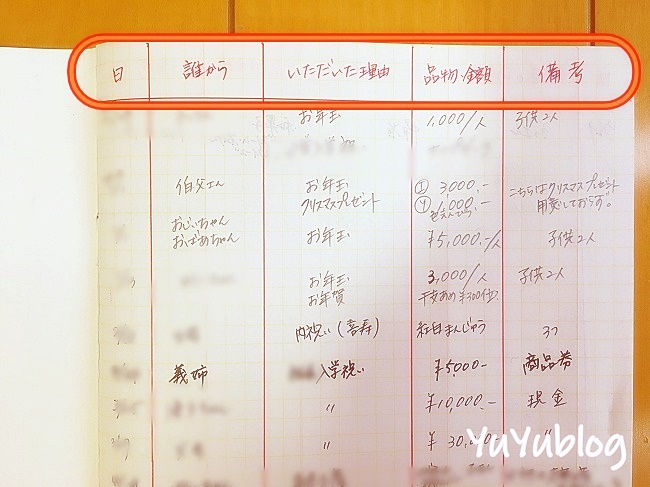 日 誰から いただいた理由 品物・金額 備考
お年玉 1,000/人 子供2人
伯父さん お年玉 ① 3,000.- こちらはクリスマスプレゼント
クリスマスプレゼント 1,000.- 用意しておらず。
おじいちゃん
おばあちゃん お年玉 ¥5,000.-/人 子供2人
お年玉 3,000/人 子供2人
お年賀 干支あめ¥300位
内祝い(喜寿) 紅白まんじゅう 3つ
義姉 入学祝い ¥5000- 商品券
〃 ¥10,000.- 現金
〃 〃
YuYublog